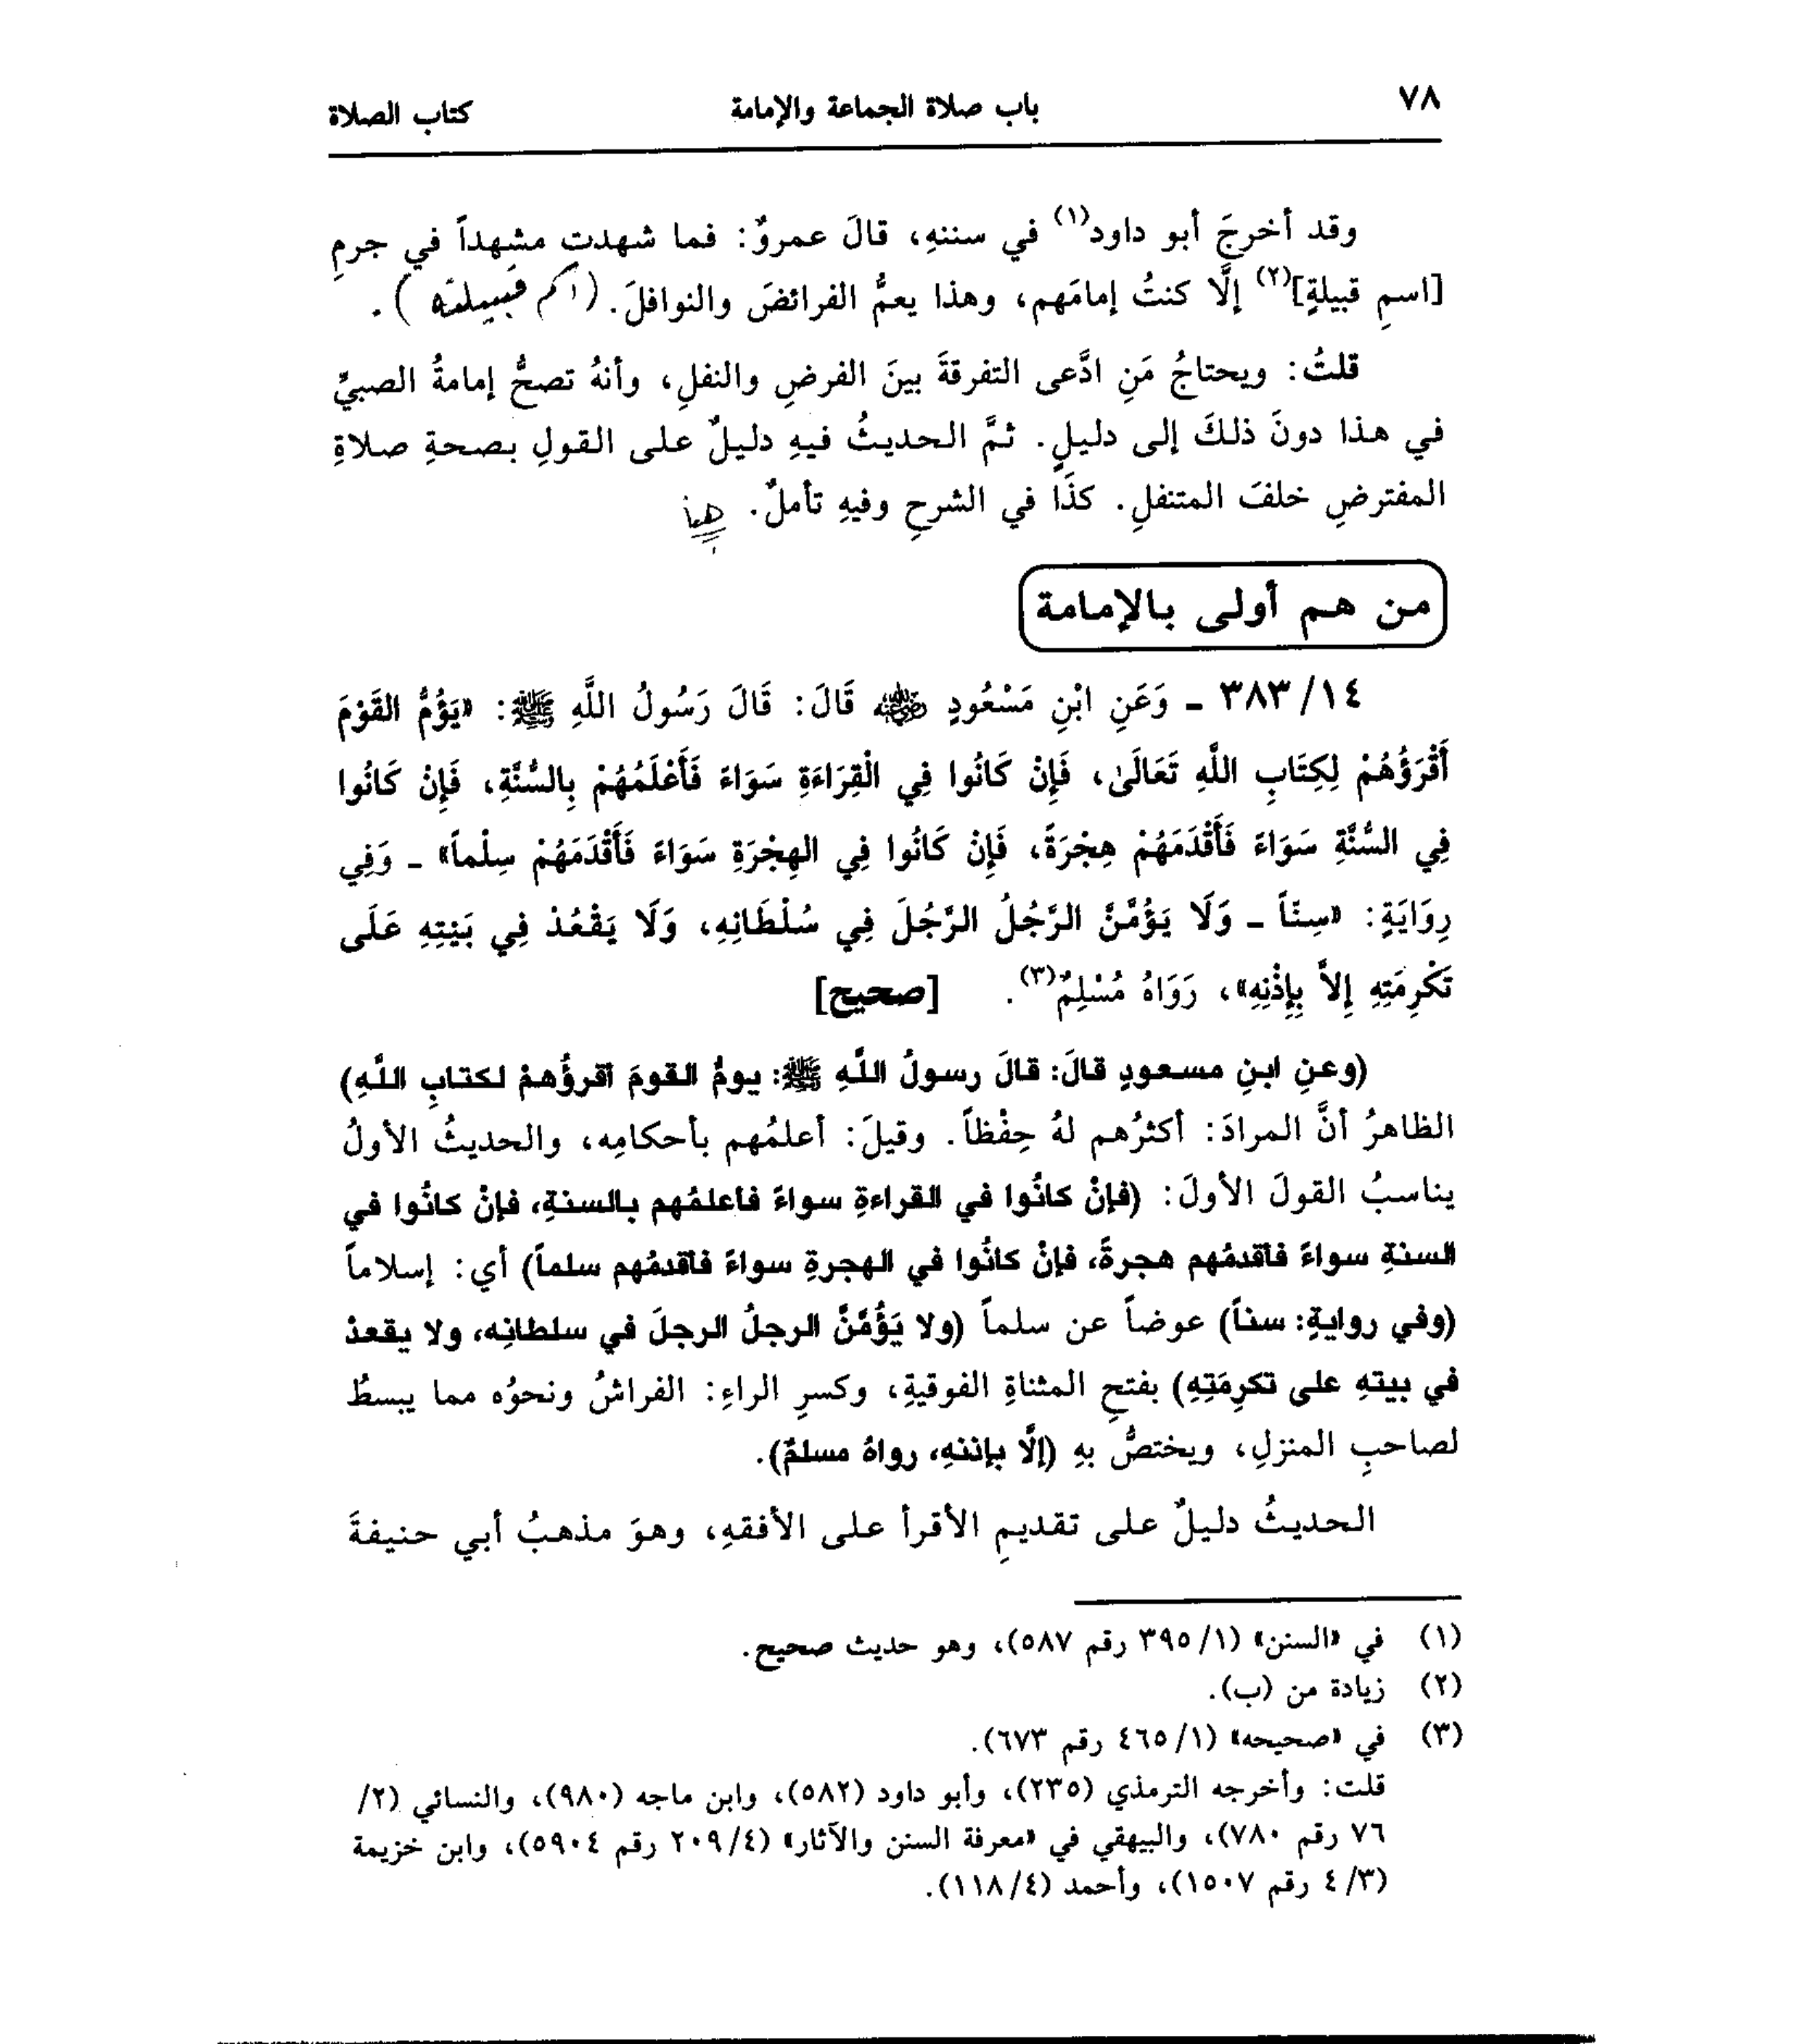 ٧٨ باب صلاة الجماعة والإمامة كتاب الصلاة
وقد أخرجَ أبو داود(١) في سننهِ، قالَ عمروٌ: فما شهدت مشهداً في جرمِ
[اسمِ قبيلةٍ](٢) إلَّا كنتُ إمامَهم، وهذا يعمُّ الفرائضَ والنوافلَ. ( ).
قلتُ: ويحتاجُ مَنِ ادَّعى التفرقةَ بينَ الفرضِ والنفلِ، وأنهُ تصحُّ إمامةُ الصبيِّ
في هذا دونَ ذلكَ إلى دليلٍ. ثمَّ الحديثُ فيهِ دليلٌ على القولِ بصحةِ صلاةِ
المفترضِ خلفَ المتنفلِ. كذَا في الشرحِ وفيهِ تأملٌ.
من هم أولى بالإمامة
٣٨٣/١٤ ـ وَعَنِ ابْنِ مَسْعُودٍ رضي الله عنه قَالَ: قَالَ رَسُولُ اللَّهِ ﷺ: «يَؤُمُّ القَوْمَ
أَقْرَؤُهُمْ لِكِتَابِ اللَّهِ تَعَالَىٰ، فَإِنْ كَانُوا فِي الْقِرَاءَةِ سَوَاءً فَأَعْلَمُهُمْ بِالسُّنَّةِ، فَإِنْ كَانُوا
فِي السُّنَّةِ سَوَاءً فَأَقْدَمَهُمْ هِجْرَةً، فَإِنْ كَانُوا فِي الهِجْرَةِ سَوَاءً فَأَقْدَمَهُمْ سِلْماً» ـ وَفِي
رِوَايَةٍ: «سِنّاً ـ وَلَا يَؤُمَّنَّ الرَّجُلُ الرَّجُلَ فِي سُلْطَانِهِ، وَلَا يَقْعُدْ فِي بَيْتِهِ عَلَى
تَكْرِمَتِهِ إِلاَّ بِإِذْنِهِ»، رَوَاهُ مُسْلِمٌ(٣). [صحيح]
(وعنِ ابنِ مسعودٍ قالَ: قالَ رسولُ اللَّهِ ﷺ: يومُّ القومَ أقرؤُهمْ لكتابِ اللَّهِ)
الظاهرُ أنَّ المرادَ: أكثرُهم لهُ حِفْظاً. وقيلَ: أعلمُهم بأحكامِه، والحديثُ الأولُ
يناسبُ القولَ الأولَ: (فإنْ كانُوا في القراءةِ سواءً فأعلمُهم بالسنةِ، فإنْ كانُوا في
السنةِ سواءً فأقدمُهم هجرةً، فإنْ كانُوا في الهجرةِ سواءً فأقدمُهم سلماً) أي: إسلاماً
(وفي روايةٍ: سناً) عوضاً عن سلماً (ولا يَؤُمَّنَّ الرجلُ الرجلَ في سلطانِه، ولا يقعدْ
في بيتهِ على تكرِمَتِهِ) بفتحِ المثناةِ الفوقيةِ، وكسرِ الراءِ: الفراشُ ونحوُه مما يبسطُ
لصاحبِ المنزلِ، ويختصُّ بهِ (إلَّا بإذنهِ، رواهُ مسلمٌ).
الحديثُ دليلٌ على تقديمِ الأقرأ على الأفقهِ، وهوَ مذهبُ أبي حنيفةَ
(١) في «السنن» (٣٩٥/١ رقم ٥٨٧)، وهو حديث صحيح.
(٢) زيادة من (ب).
(٣) في «صحيحه» (٤٦٥/١ رقم ٦٧٣).
قلت: وأخرجه الترمذي (٢٣٥)، وأبو داود (٥٨٢)، وابن ماجه (٩٨٠)، والنسائي (٢/
٧٦ رقم ٧٨٠)، والبيهقي في «معرفة السنن والآثار» (٢٠٩/٤ رقم ٥٩٠٤)، وابن خزيمة
(٤/٣ رقم ١٥٠٧)، وأحمد (١١٨/٤).